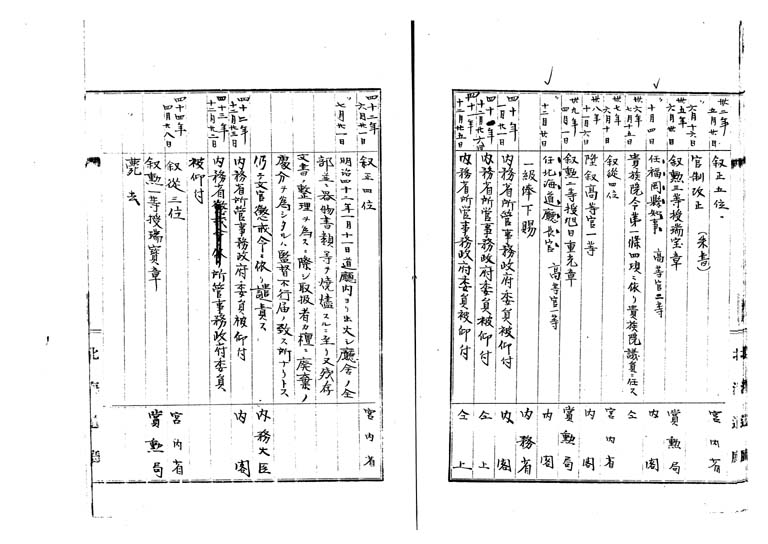 卅二年 五月廿日 叙正五位 宮内省
六月十六日 官制改正（朱書）
卅五年 六月廿日 叙勲三等授瑞宝章 賞勲局
十月四日 任福岡縣知事 高等官二等 内閣
卅六年 七月十五日 貴族院令第一條四項ニ依リ貴族院議員ニ任ス 仝
卅七年 六月十日 叙従四位 宮内省
卅八年 十一月六日 陞叙高等官一等 内閣
卅九年 四月一日 叙勲二等授旭日重光章 賞勲局
十二月廿日 任北海道廳長官 高等官一等 内閣
一級俸下賜 内務省
四十年 一月廿日 内務省所管事務政府委員被仰付 内閣
四十年 十二月廿六日 内務省所管事務政府委員被仰付 仝上
四十一年 十二月廿五日 内務省所管事務政府委員被仰付 仝上
北海道廳
四十二年 六月廿一日 叙正四位 宮内省
七月廿一日 明治四十二年一月十一日道廳内ヨリ出火シ廳舎ノ全
部並ニ器物書類等ヲ焼燼スルニ至リ又残存
文書ノ整理ヲ為スニ際シ取扱者カ檀ニ廃棄ノ
處分ヲ為シタルハ監督不行届ノ致ス所ナリトス
仍テ文官懲戒令ニ依リ譴責ス 内務大臣
四十二年 十二月廿日 内務省所管事務政府委員被仰付 内閣
四十三年 十二月廿一日 内務省所管事務政府委員
被仰付
四十四年 四月廿八日 叙従三位 宮内省
叙勲一等授瑞寶章 賞勲局
薨去
北海道廳